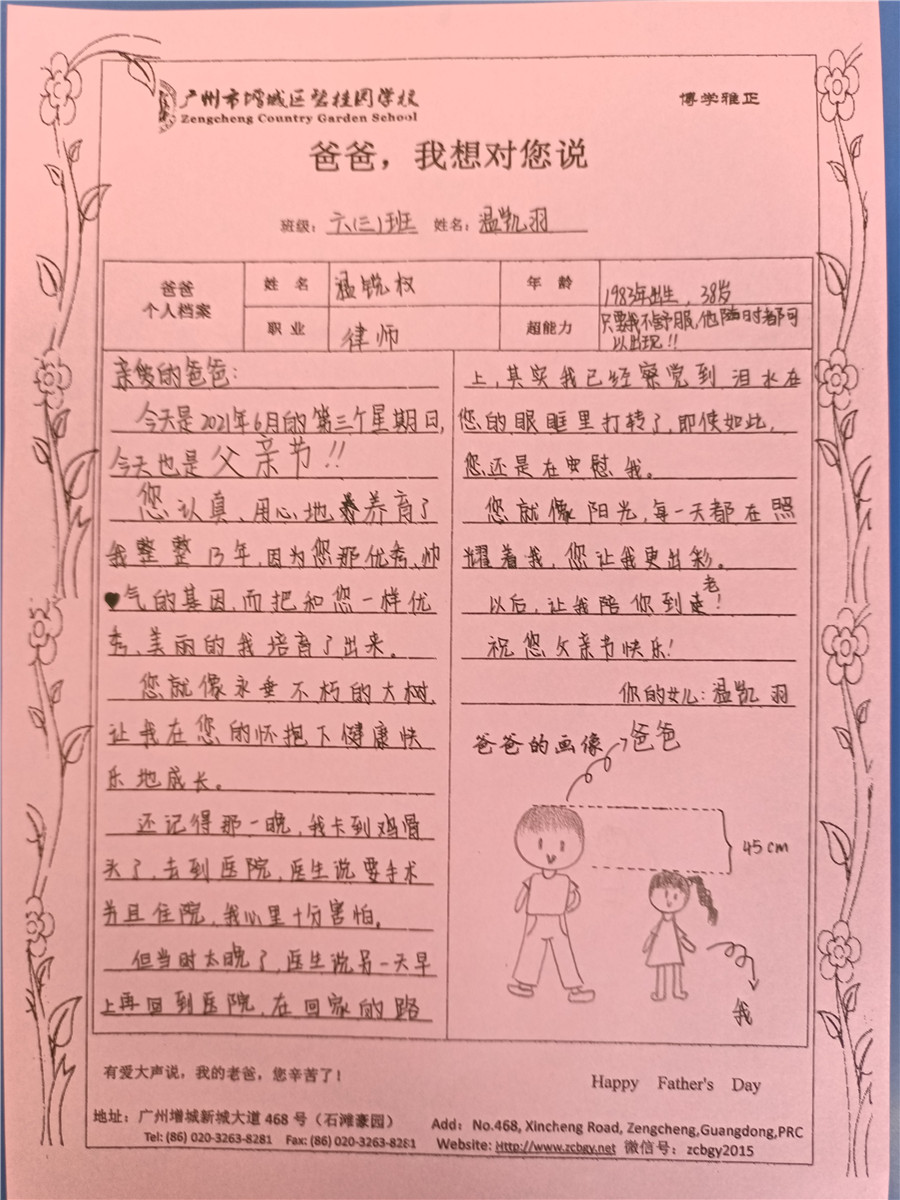 广州市增城区碧桂园学校
Zengcheng Country Garden School
博学雅正
爸爸，我想对您说
班级：六(三)班 姓名：温凯羽
爸爸
个人档案
姓 名
温锐权
年 龄
1983年出生，38岁
职 业
律师
超能力
只要我不舒服,他随时都可
以出现!!
亲爱的爸爸：
今天是2021年6月的第三个星期日,
今天也是父亲节!!
您认真、用心地养育了
我整整13年,因为您那优秀、帅
气的基因,而把和您一样优
秀、美丽的我培育了出来。
您就像永垂不朽的大树,
让我在您的怀抱下健康快
乐地成长。
还记得那一晚,我卡到鸡骨
头了,去到医院,医生说要手术
并且住院,我心里十分害怕。
但当时太晚了,医生说另一天早
上再回到医院,在回家的路
上,其实我已经察觉到泪水在
您的眼眶里打转了,即使如此,
您还是在安慰我。
您就像阳光,每一天都在照
耀着我,您让我更出彩。
以后,让我陪你到老!
祝您父亲节快乐!
你的女儿:温凯羽
爸爸的画像
爸爸
45cm
我
有爱大声说，我的老爸，您辛苦了！
Happy Father's Day
地址：广州增城新城大道 468 号（石滩豪园） Add：No.468, Xincheng Road, Zengcheng,Guangdong,PRC
Tel: (86) 020-3263-8281 Fax: (86) 020-3263-8281 Website: Http://www.zcbgy.net 微信号：zcbgy2015